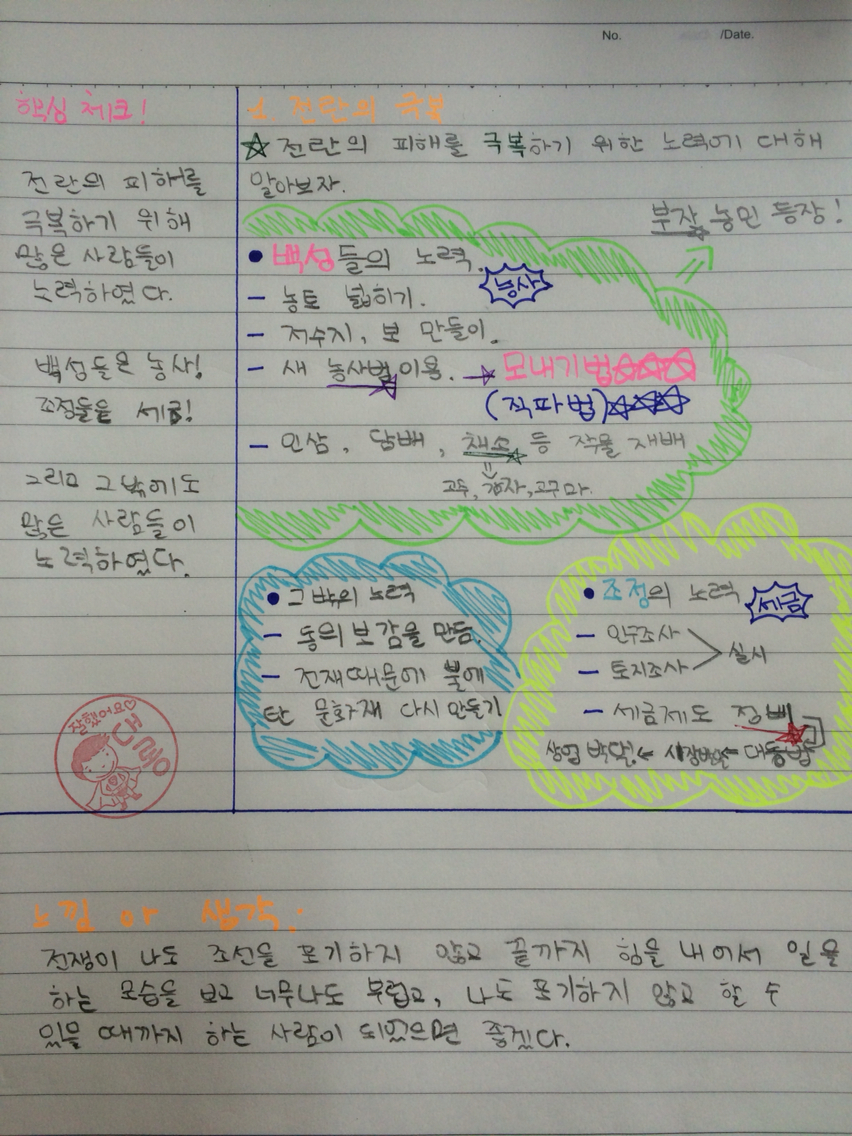 No. /Date.
핵심 체크!
전란의 피해를
극복하기 위해
많은 사람들이
노력하였다.
백성들은 농사!
조정들은 세금!
그리고 그 밖에도
많은 사람들이
노력하였다.
잘했어요♡
전란의 극복
☆ 전란의 피해를 극복하기 위한 노력에 대해
알아보자.
부자 농민 등장!
● 백성들의 노력.
농사
- 농토 넓히기.
- 저수지, 보 만들이.
- 새 농사법 이용. → 모내기법☆☆☆
(직파법)☆☆☆
- 인삼, 담배, 채소 등 작물 재배
고추, 감자, 고구마.
● 그 밖의 노력
- 동의보감을 만듬.
- 전재때문에 불에
탄 문화재 다시 만들기
● 조정의 노력
세금
- 인구조사
- 토지조사
실시
- 세금제도 정비
상업 박달! ← ← 대동법
느낌 or 생각:
전쟁이 나도 조선을 포기하지 않고 끝까지 힘을 내어서 일을
하는 모습을 보고 너무나도 부럽고, 나도 포기하지 않고 할 수
있을 때까지 하는 사람이 되었으면 좋겠다.